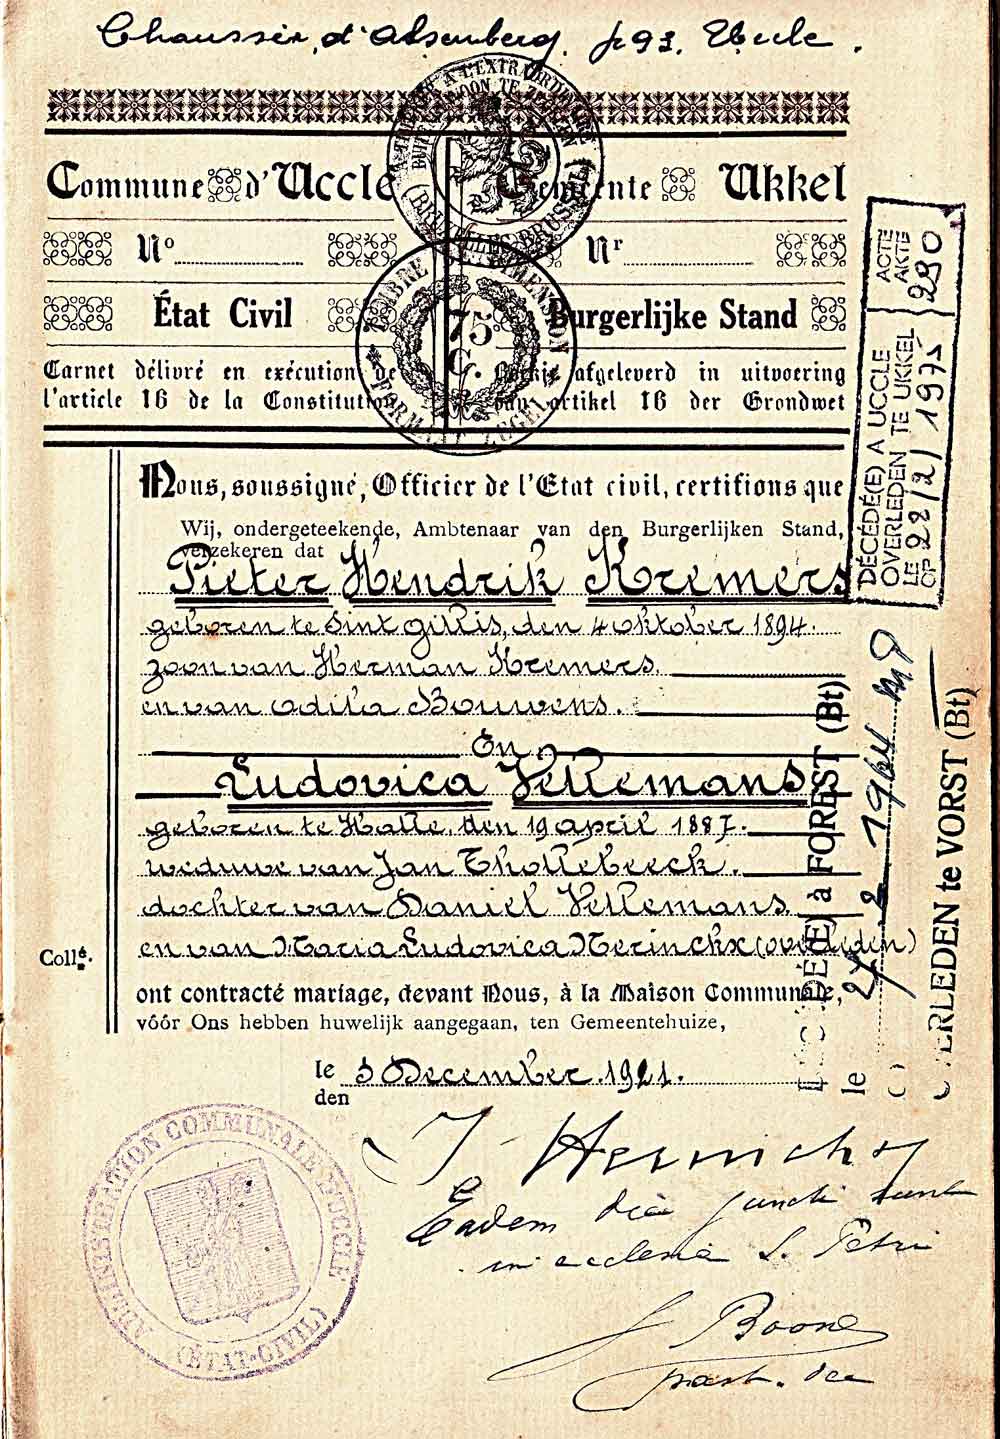 Chaussée, d'Alsemberg. 193. Uccle.
TIMBRE A L'EXTRAORDINAIRE
BUITENGEWOON TE ZEGELEN
(BRUXELLES-BRUSSEL)
Commune d'Uccle Gemeente Ukkel
No Nr
TIMBRE DIMENSION
75 C.
FORMAAT ZEGEL
État Civil Burgerlijke Stand
Carnet délivré en exécution de Boekje afgeleverd in uitvoering
l'article 16 de la Constitution van artikel 16 der Grondwet
DÉCÉDÉ(E) A UCCLE ACTE
OVERLEDEN TE UKKEL AKTE
LE OP 22/2/1975 280
Nous, soussigné, Officier de l'Etat civil, certifions que
Wij, ondergeteekende, Ambtenaar van den Burgerlijken Stand,
verzekeren dat
Pieter Hendrik Kremers
geboren te Sint Gillis, den 4 oktober 1894.
zoon van Herman Kremers.
en van Odila Bouwens.
En
Ludovica Vellemans
geboren te Halle, den 19 april 1887.
weduwe van Jan Thollebeeck.
dochter van Daniel Vellemans
en van Maria Ludovica Nerinckx (overleden)
Collé.
ont contracté mariage, devant Nous, à la Maison Communale,
vóór Ons hebben huwelijk aangegaan, ten Gemeentehuize,
le
den 3 December 1921.
DÉCÉDÉ(E) à FOREST (Bt)
le 2 1964
OVERLEDEN te VORST (Bt)
ADMINISTRATION COMMUNALE D'UCCLE
(ÉTAT-CIVIL)
Eadem die juncti sunt
in ecclesia S. Petri
Boone
past. dec